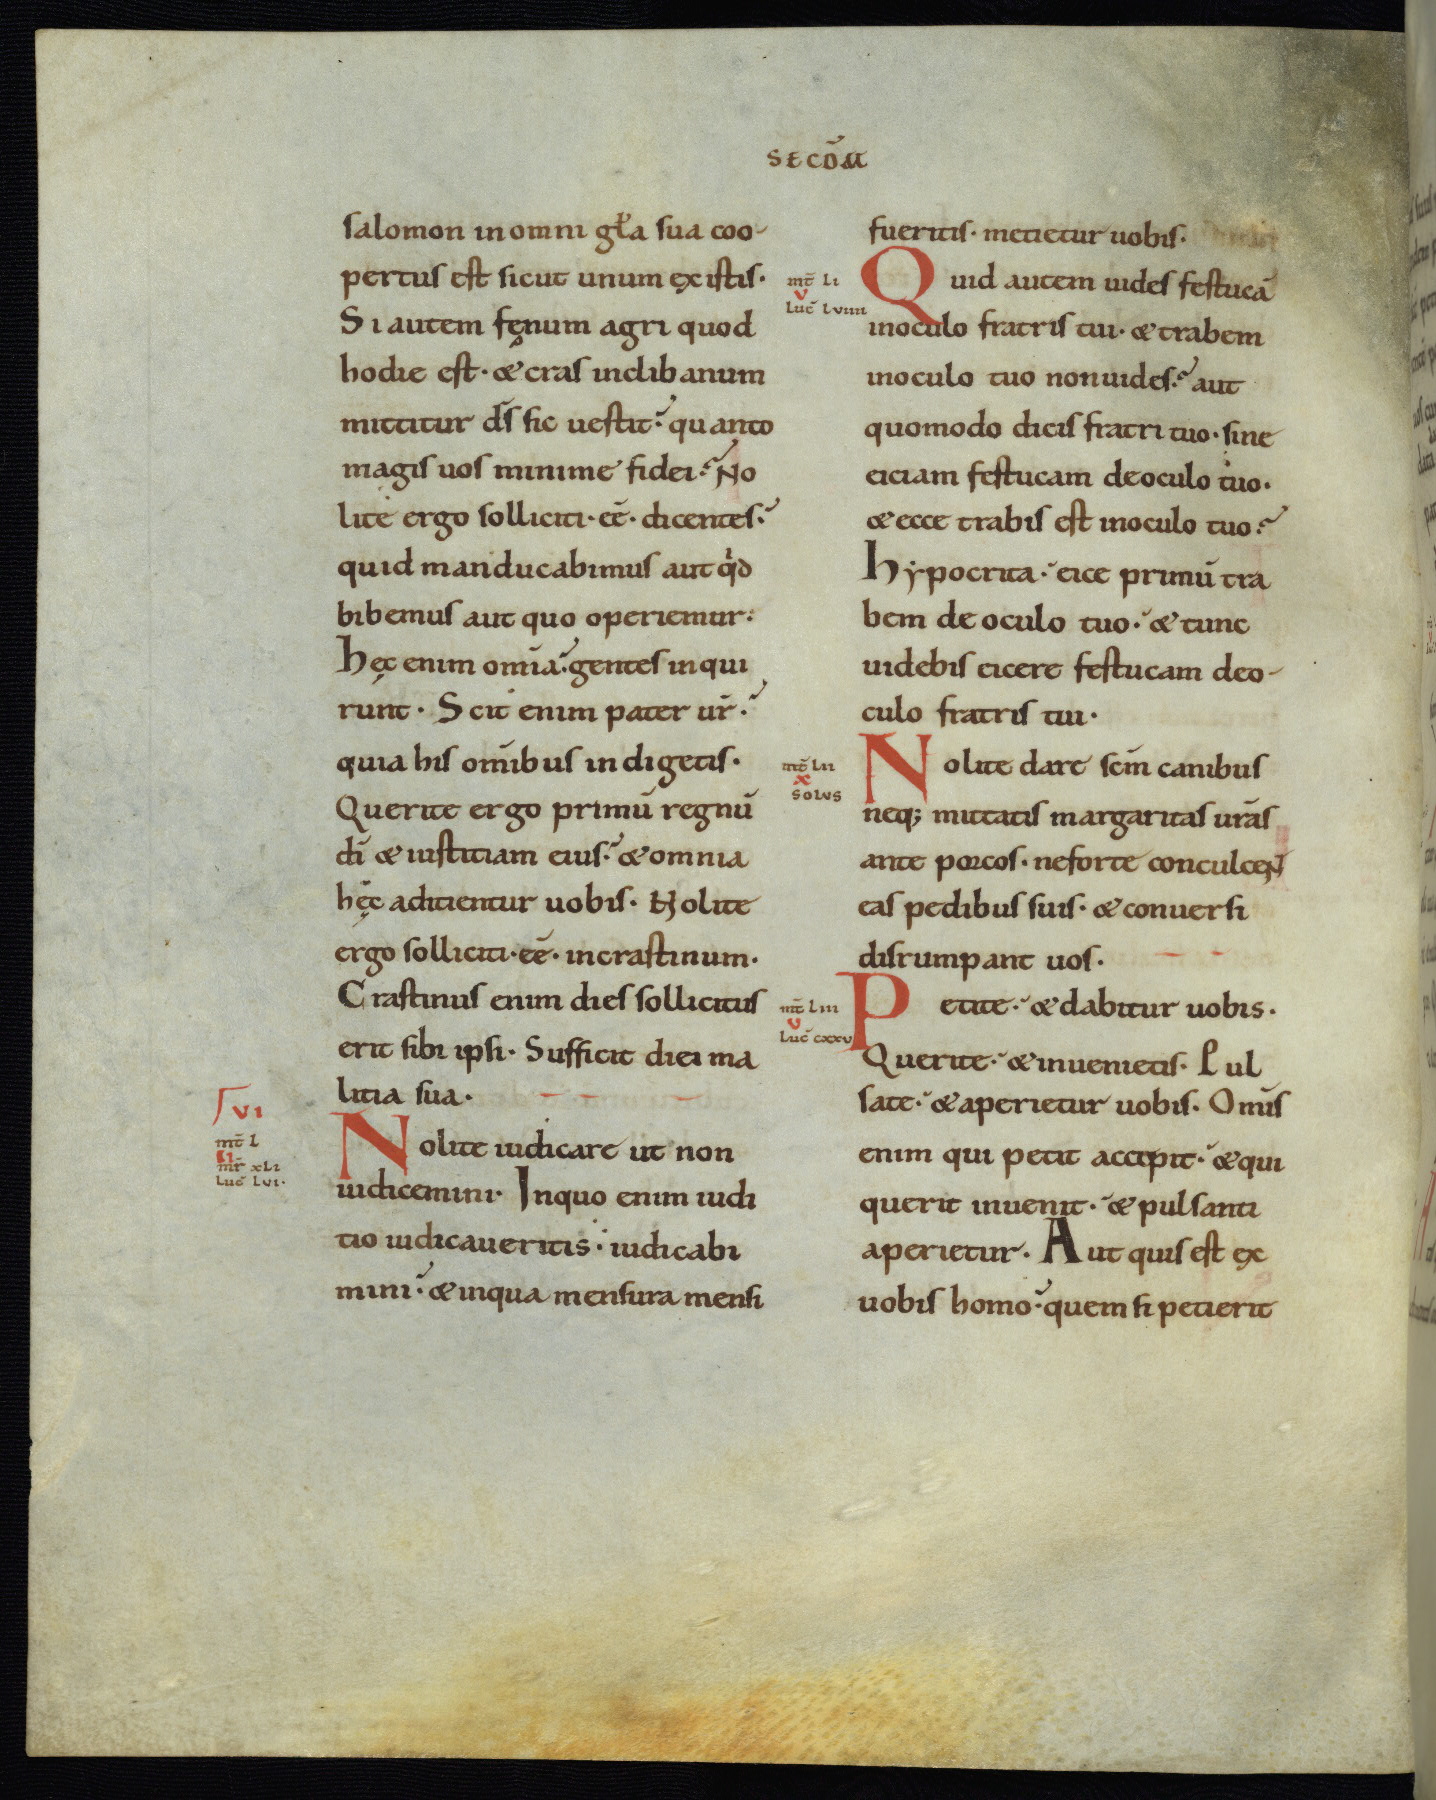 SECD̄M
salomon in omni gła sua coo-
pertus est sicut unum ex istis.
Si autem fęnum agri quod
hodie est. & cras in clibanum
mittitur d̄s sic uestit. quanto
magis uos minime fidei. No
lite ergo solliciti. eē. dicentes.
quid manducabimus aut qd
bibemus aut quo operiemur.
hęc enim om̄ia. gentes inqui
runt. Scit enim pater ur̄.
quia his om̄ibus indigetis.
Querite ergo primū regnū
dī & iustitiam eius. & omnia
hęc adicientur uobis. Nolite
ergo solliciti. eē. in crastinum.
Crastinus enim dies sollicitus
erit sibi ipsi. Sufficit diei ma
litia sua.
VI
mt̄ L
II
mr̄ xLI
Luc̄ LVI.
Nolite iudicare ut non
iudicemini. In quo enim iudi
tio iudicaueritis. iudicabi
mini. & in qua mensura mensi
fueritis. metietur uobis.
mt̄ LI
V
Luc̄ LVIIII
Quid autem uides festucā
in oculo fratris tui. & trabem
in oculo tuo non uides. aut
quomodo dicis fratri tuo. sine
eiciam festucam de oculo tuo.
& ecce trabis est in oculo tuo.
hypocrita. eice primū tra
bem de oculo tuo. & tunc
uidebis eicere festucam de o-
culo fratris tui.
mt̄ LII
X
SOLVS
Nolite dare sc̄m canibus
neq; mittatis margaritas ur̄as
ante porcos. ne forte conculcent
eas pedibus suis. & conuersi
disrumpant uos.
mt̄ LIII
V
Luc̄ cxxv
Petite. & dabitur uobis.
Querite. & inuenietis. Pul
sate. & aperietur uobis. Omīs
enim qui petit accipit. & qui
querit inuenit. & pulsanti
aperietur. Aut quis est ex
uobis homo. quem si petierit